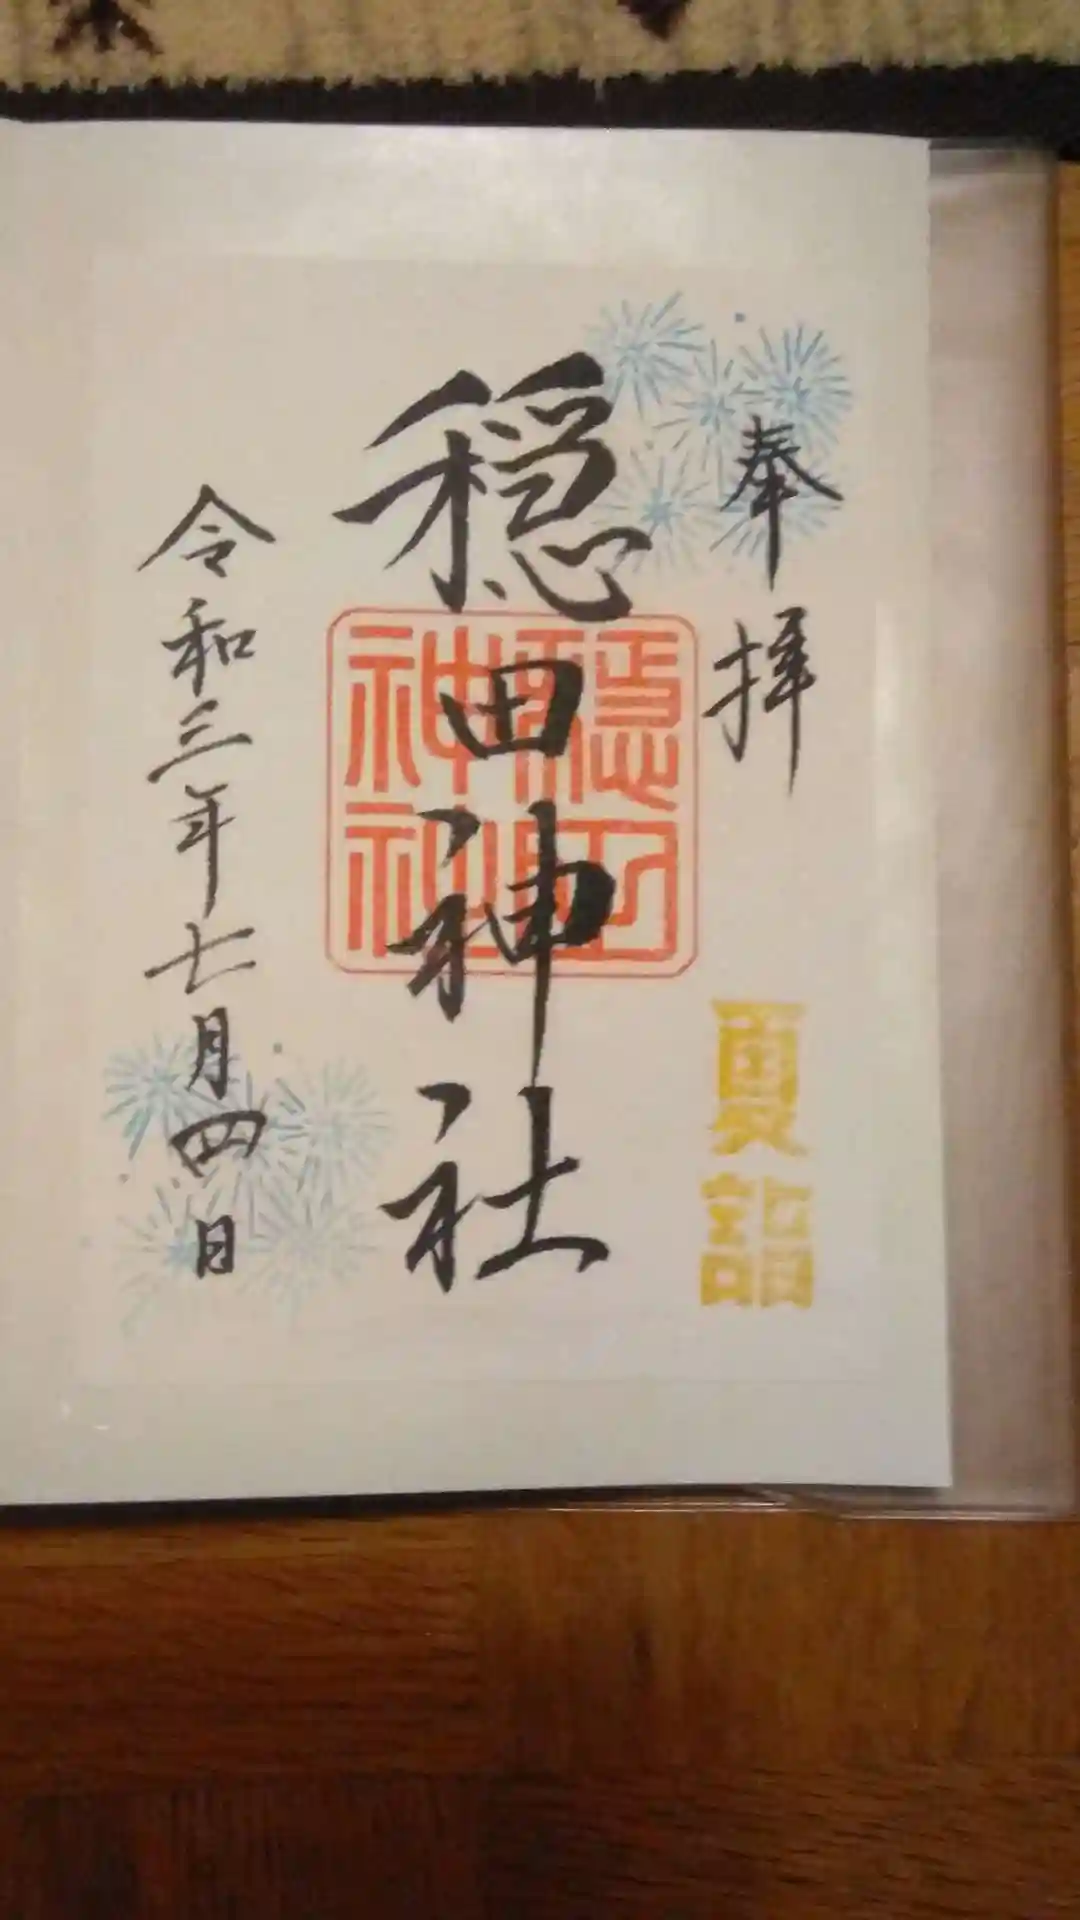 奉拝
夏詣
穏田神社
穏田
神社
令和三年七月四日